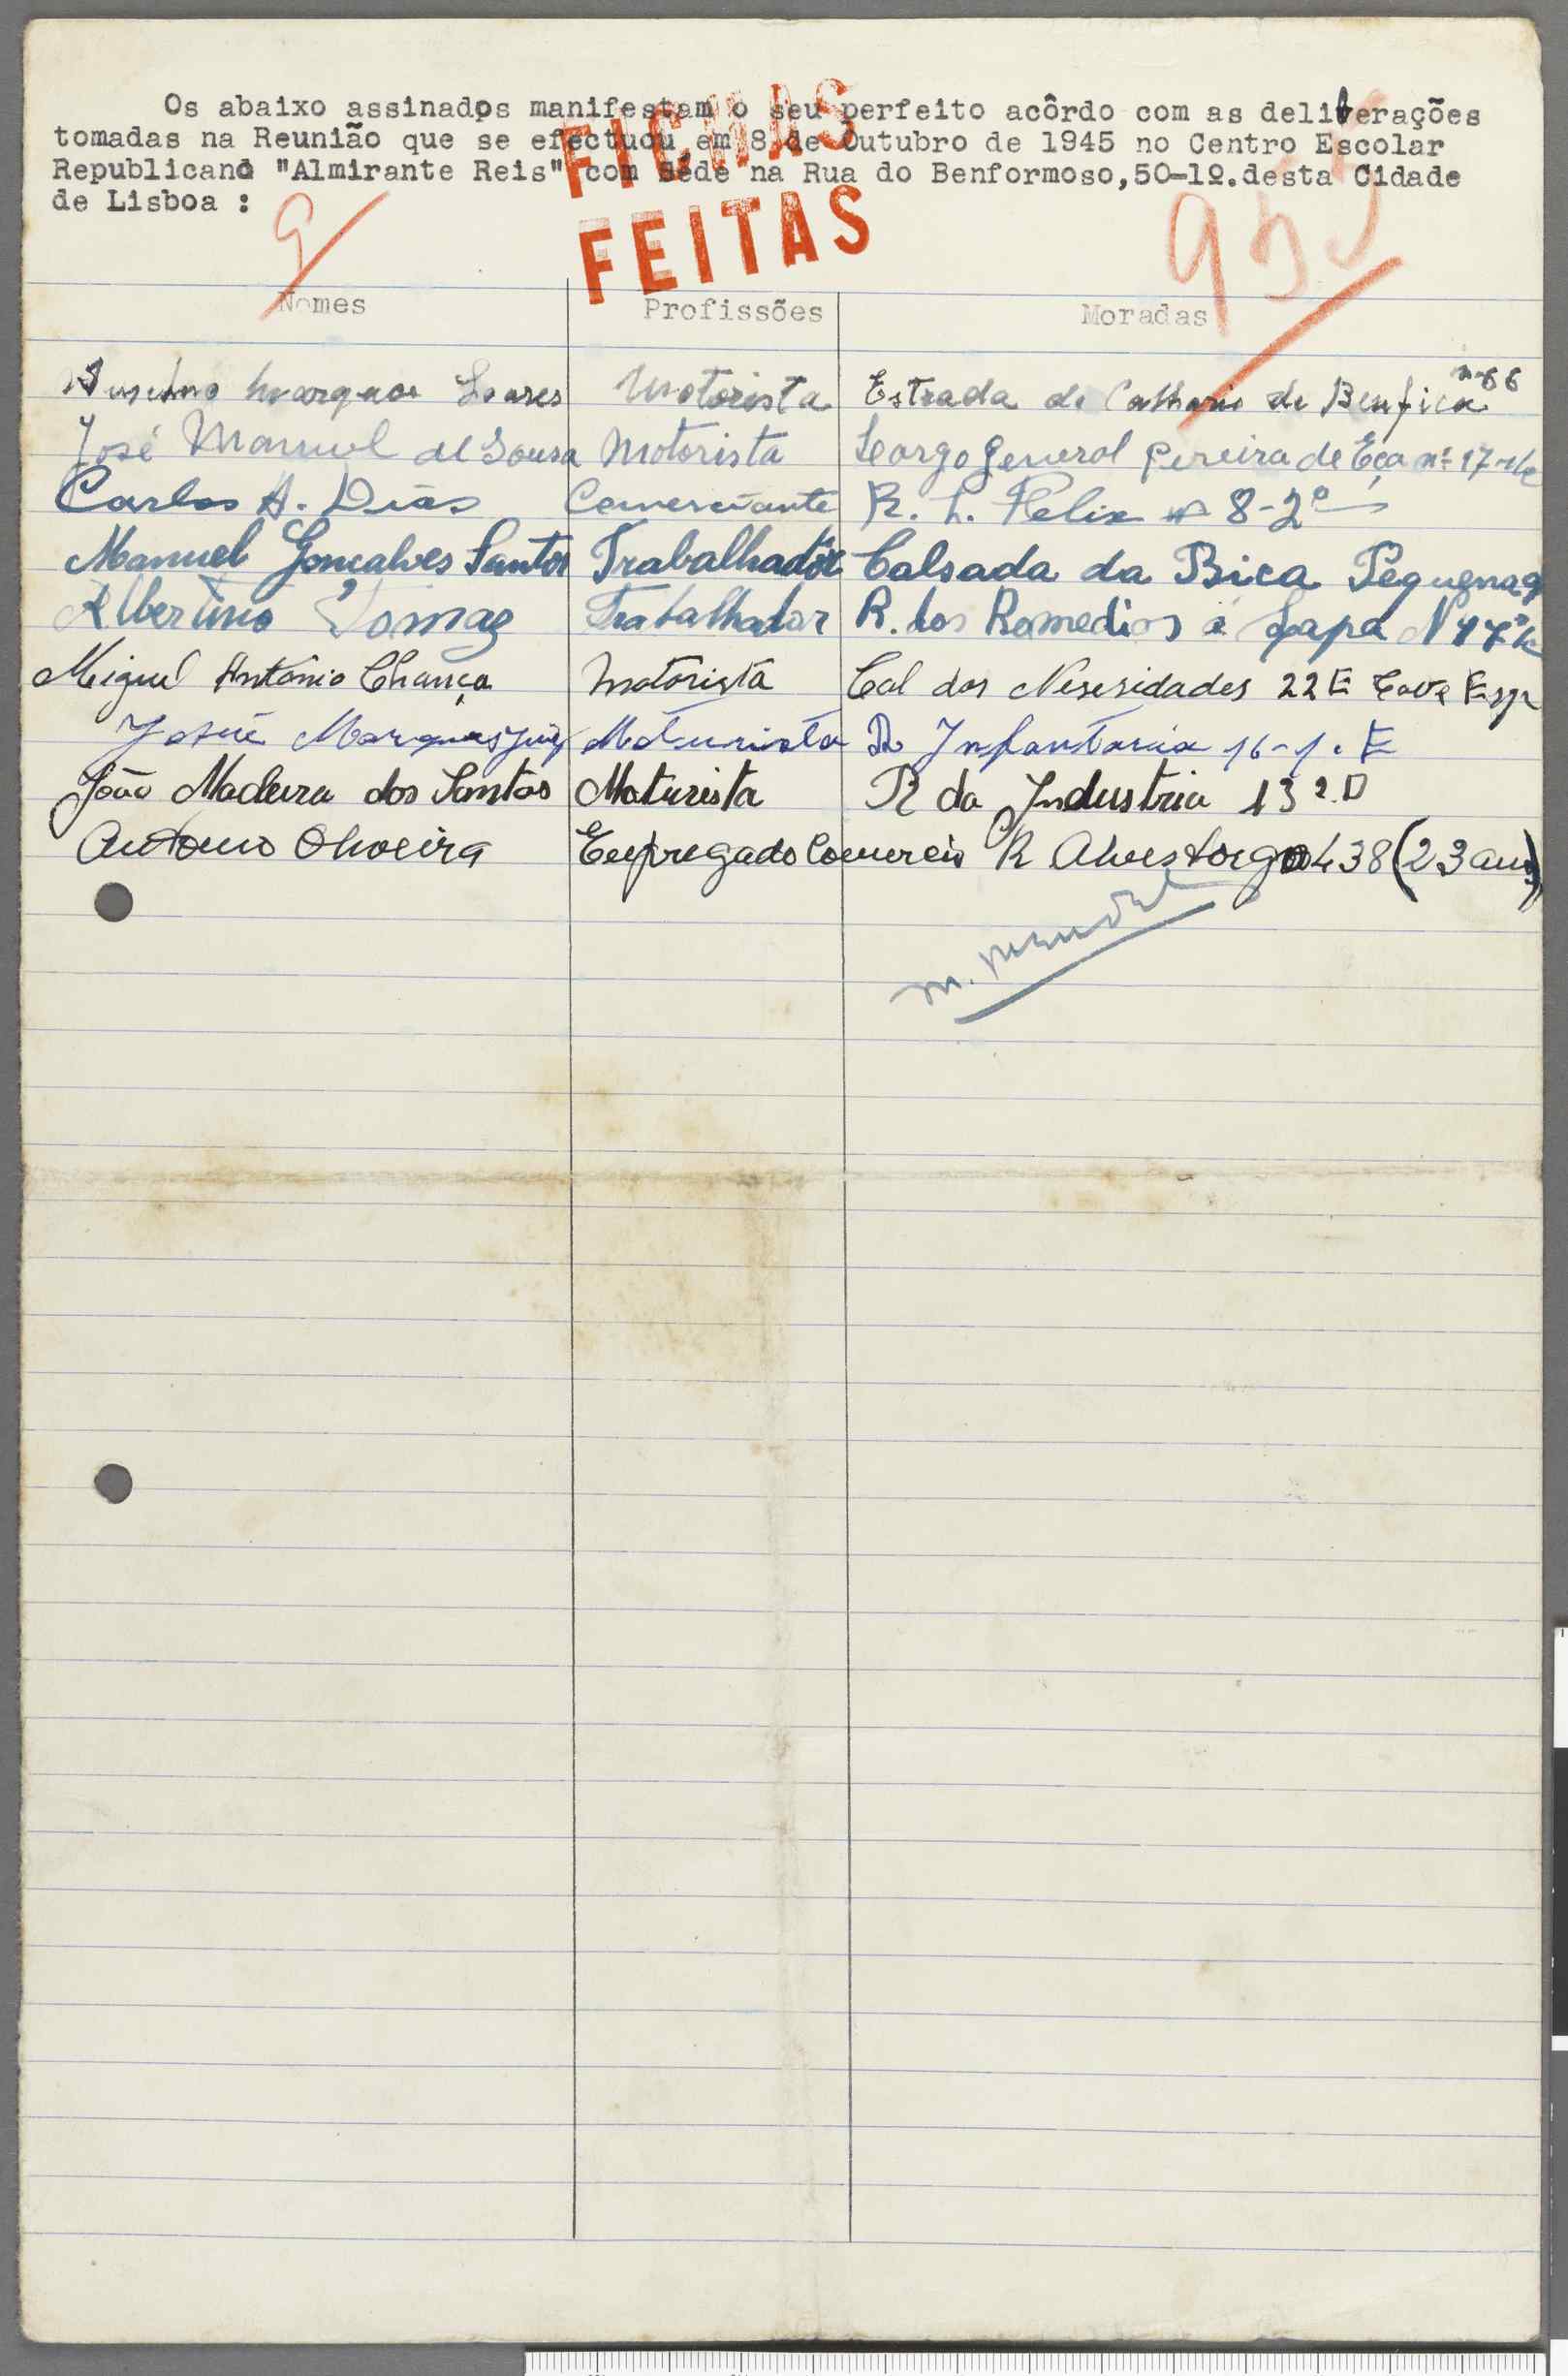 Os abaixo assinados manifestam o seu perfeito acôrdo com as deliberações
tomadas na Reunião que se efectuou em 8 de Outubro de 1945 no Centro Escolar
Republicano "Almirante Reis" com Sede na Rua do Benformoso,50-1º.desta Cidade
de Lisboa :
FICHAS
FEITAS
9
Nomes Profissões Moradas
Soares Motorista Estrada de de Benfica nº 66
José Manuel de Sousa Motorista Largo General Pereira de Eça nº 17
Carlos A. Dias Comerciante R. L. Felix nº 8-2º
Manuel Goncalves Santos Trabalhador Calsada da Bica Pequena 9
Albertino Tomaz Trabalhador R. dos Romedios á Lapa N
Miguel António Chança Motorista Cal das Nesesidades 22 E Cave Esq
Josué Marques Moturista R Infantaria 16-1. E
João Madeira dos Santos Moturista R da Industria 13 2.D
Antonio Oliveira Empregado Comercio R Alves torgo 438 (23 anos)